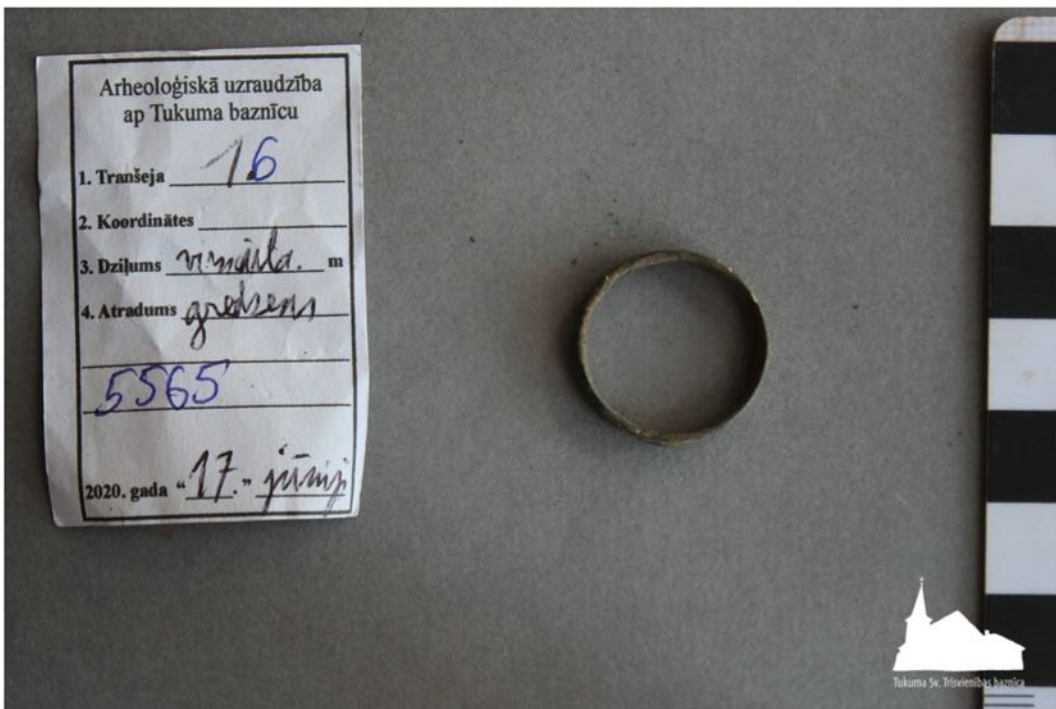 Arheoloģiskā uzraudzība
ap Tukuma baznīcu
1. Tranšeja 16
2. Koordinātes
3. Dziļums m
4. Atradums gredzens
5565
2020. gada "17." jūnijs
Tukuma Sv. Trīsvienības baznīca